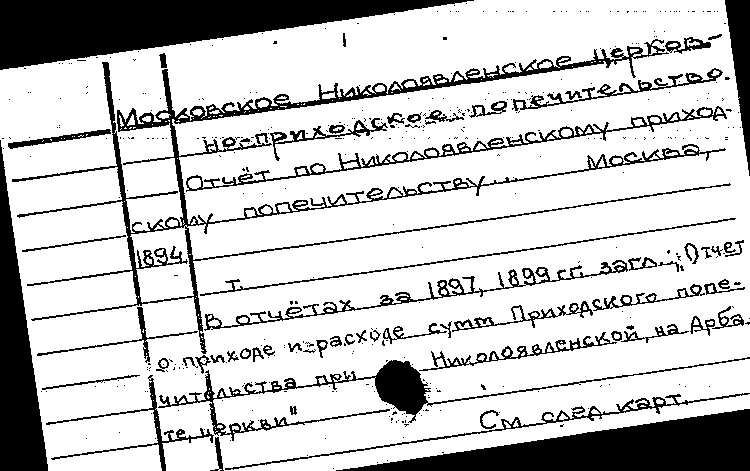 Московское Николоявленское церков-
но-приходское попечительство.
Отчёт по Николоявленскому приход-
скому попечительству... Москва,
1894
т.
В отчётах за 1897, 1899 гг. загл.: „Отчет
о приходе и расходе сумм Приходского попе-
чительства при Николоявленской, на Арба-
те, церкви"
См след карт.